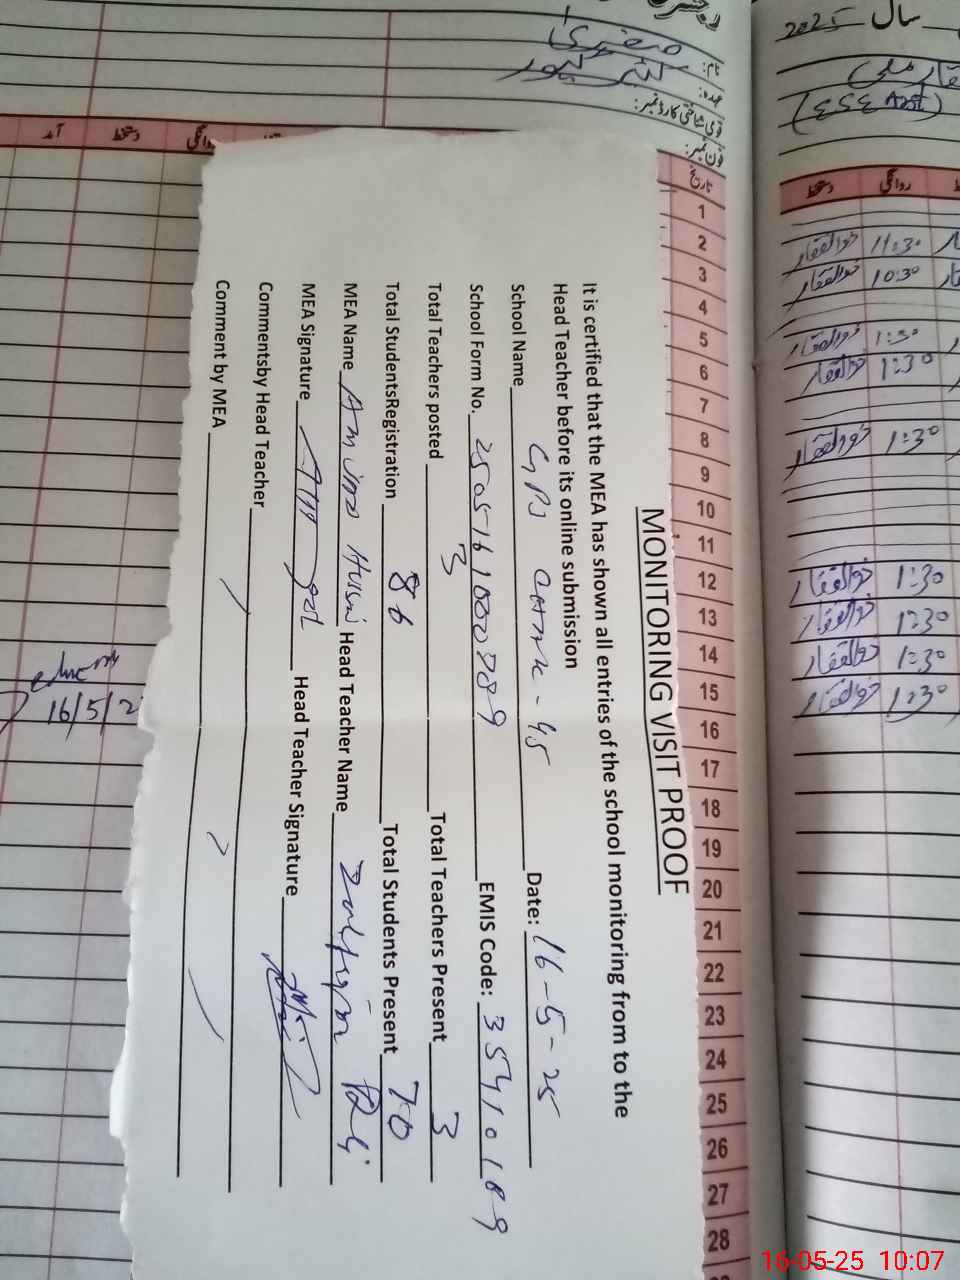 MONITORING VISIT PROOF
It is certified that the MEA has shown all entries of the school monitoring from to the
Head Teacher before its online submission
School Name GPS Date: 16-5-25
School Form No. EMIS Code: 35410189
Total Teachers posted 3 Total Teachers Present 3
Total StudentsRegistration 86 Total Students Present 70
MEA Name Head Teacher Name
MEA Signature Head Teacher Signature
Commentsby Head Teacher
Comment by MEA
نام: صغریٰ
عہدہ:
قومی شناختی کارڈ نمبر:
فون نمبر:
تاریخ
آمد دستخط روانگی
1
2
3
4
5
6
7
8
9
10
11
12
13
14
15
16
17
18
19
20
21
22
23
24
25
26
27
28
16/5/2
سال 2025
(ESE Arst)
روانگی دستخط
11:30 ذوالفقار
10:30 ذوالفقار
1:30 ذوالفقار
1:30 ذوالفقار
1:30 ذوالفقار
1:30 ذوالفقار
1:30 ذوالفقار
1:30 ذوالفقار
1:30 ذوالفقار
16-05-25 10:07